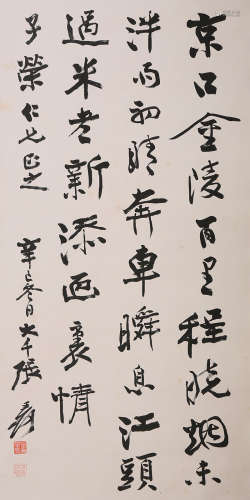 京口金陵百里程晓烟未
泮雨初晴奔車瞬息江頭
過米老新添画裏情
子榮仁兄正之
辛巳冬日大千張爰